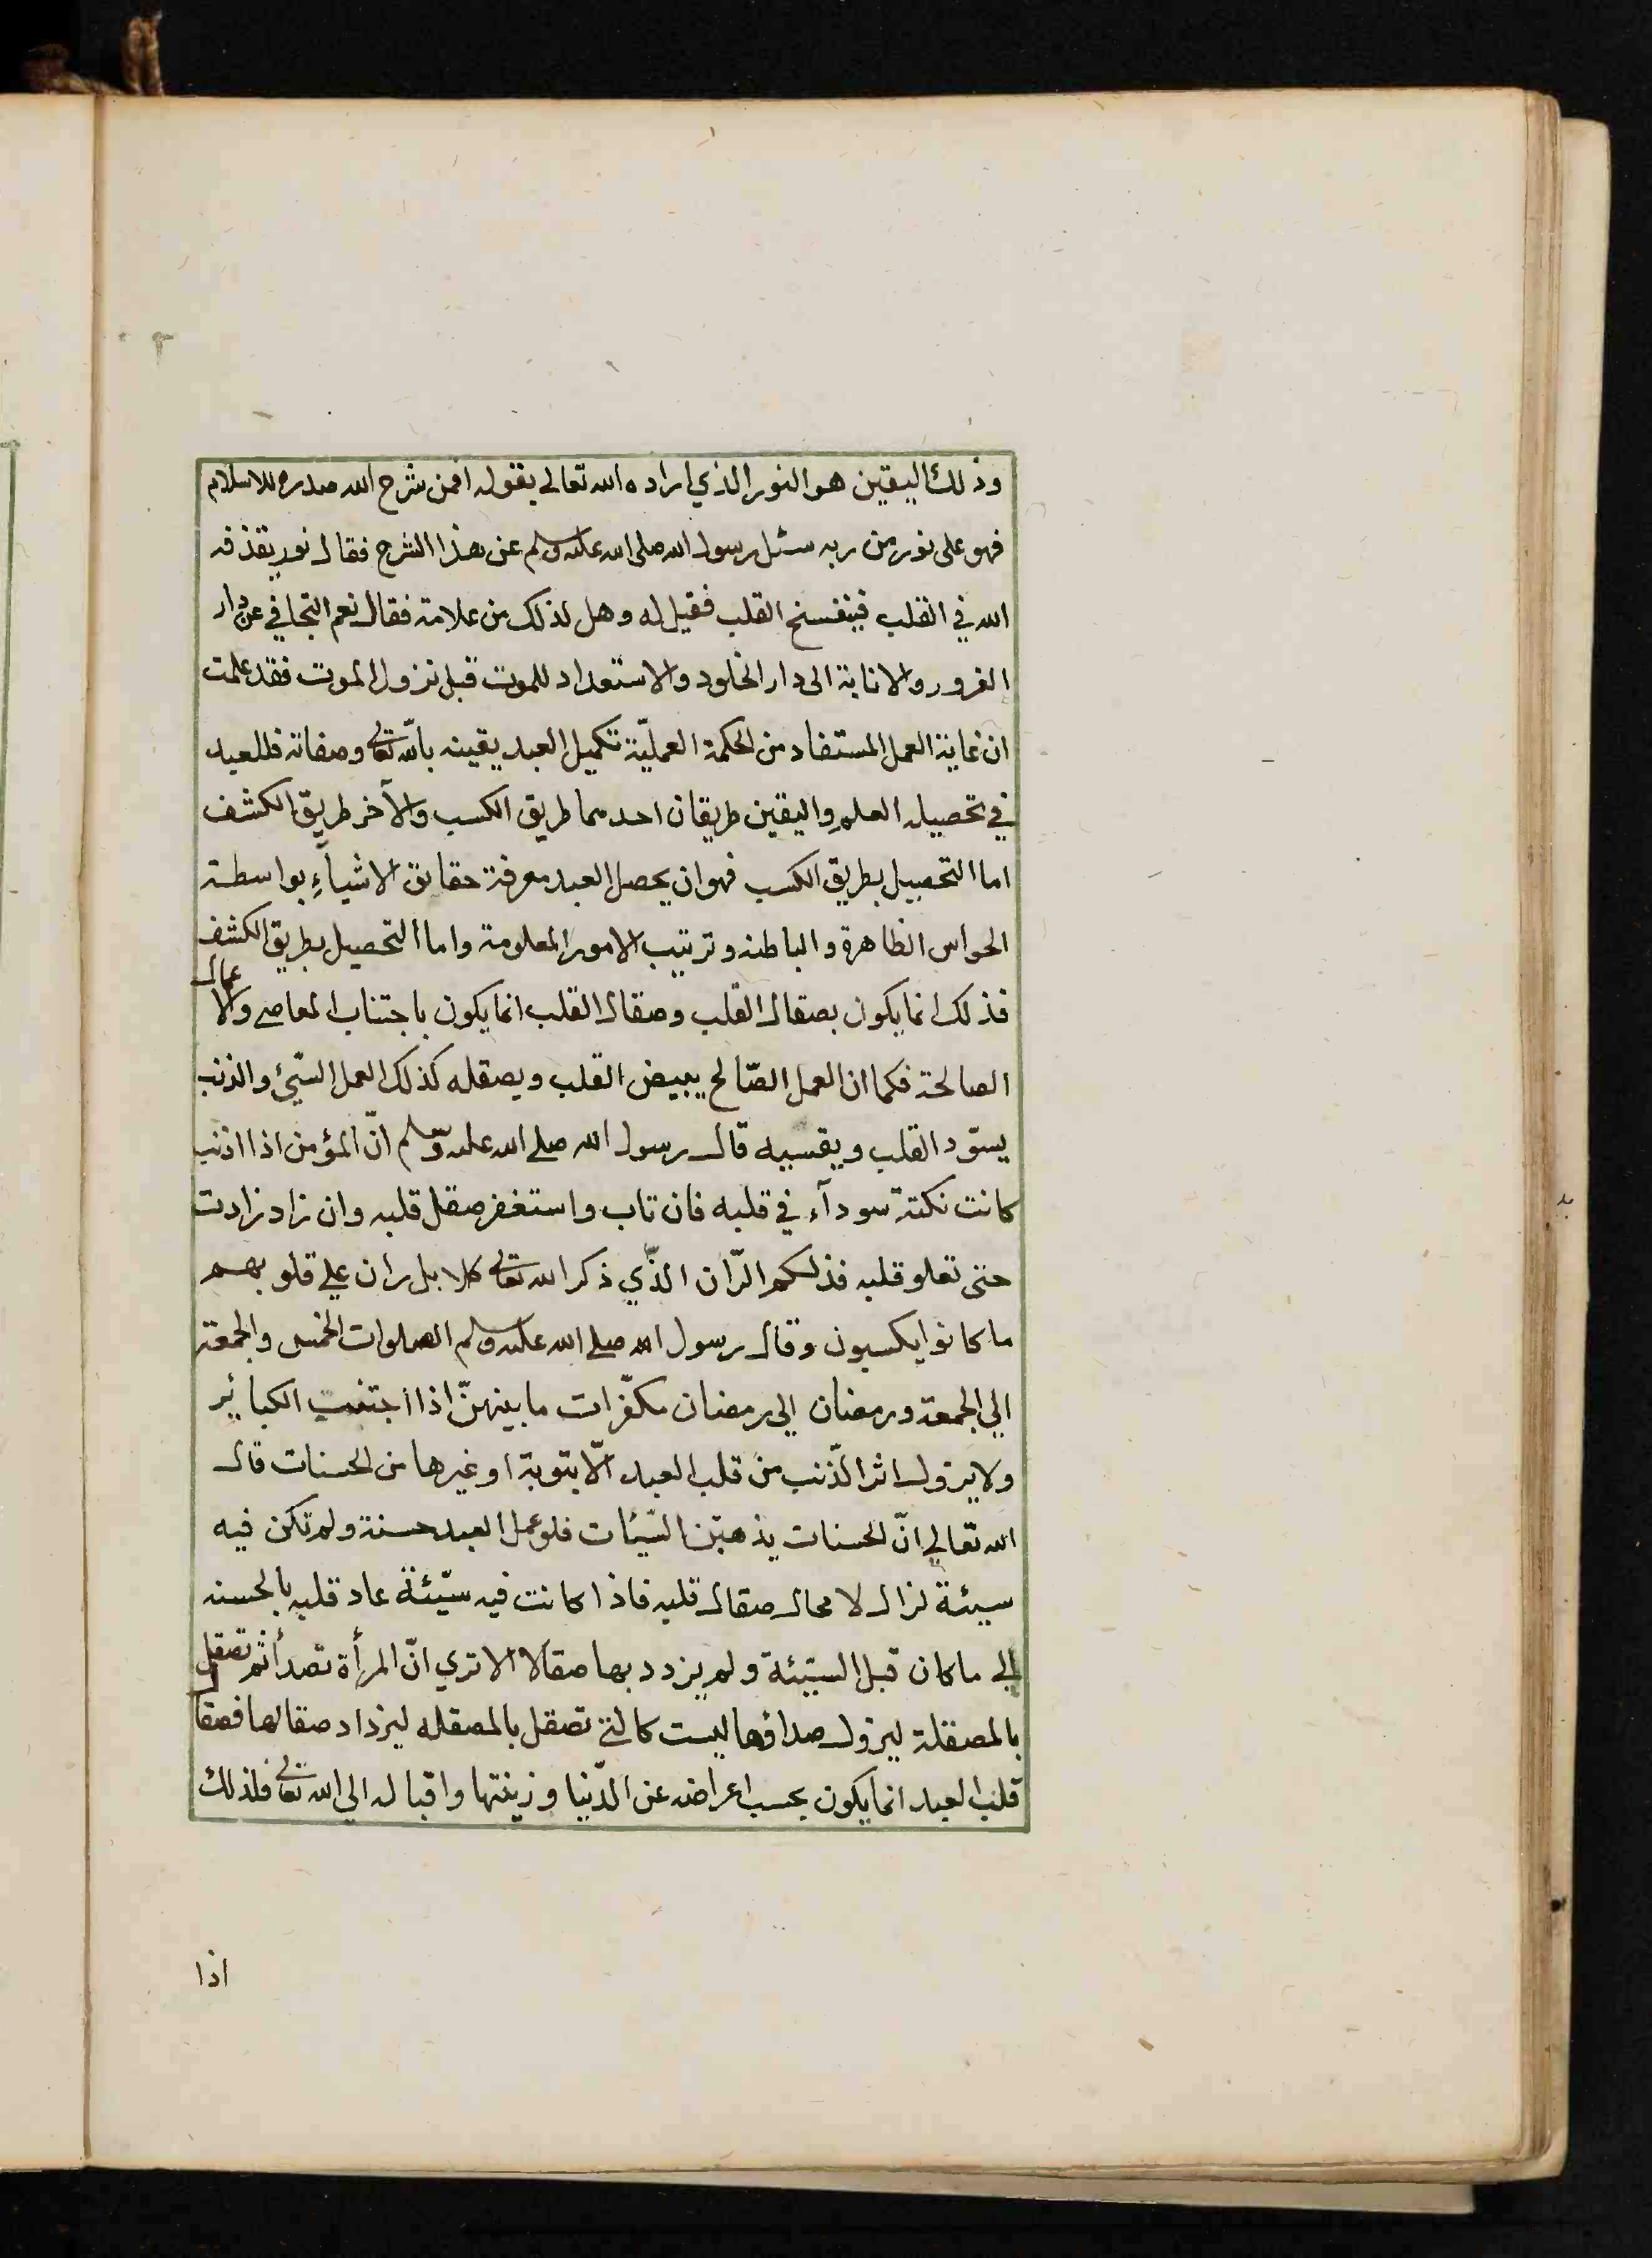 وذلك اليقين هو النور الذي اراده الله تعالى بقوله افمن شرح الله صدره للاسلام
فهو على نور من ربه سئل رسول الله صلى الله عليه وسلم عن هذا الشرح فقال نور يقذفه
الله في القلب فينفسخ القلب فقيل له وهل لذلك من علامة فقال نعم التجافي عن دار
الغرور والانابة الى دار الخلود والاستعداد للموت قبل نزول الموت فقد علمت
ان غاية العمل المستفاد من الحكمة العمليّة تكميل العبد يقينه بالله تعالى وصفاته فللعبد
في تحصيل العلم واليقين طريقان احدهما طريق الكسب والآخر طريق الكشف
اما التحصيل بطريق الكسب فهو ان يحصل العبد معرفة حقائق الاشيآءِ بواسطة
الحواس الظاهرة والباطنه وترتيب الامور المعلومة واما التحصيل بطريق الكشف
فذلك انما يكون بصقال القلب وصقال القلب انما يكون باجتناب المعاصي والاعمال
الصالحة فكما ان العمل الصّالح يبيض القلب ويصقله كذلك العمل السّيئ والذنب
يسوّد القلب ويقسيه قال رسول الله صلي الله عليه وسلم انّ المؤمن اذا اذنب
كانت نكتة سودآء في قلبه فان تاب واستغفر صقل قلبه وان زاد زادت
حتى تعلو قلبه فذلكم الرّان الذّي ذكر الله تعالى كلا بل ران علي قلوبهم
ما كانوا يكسبون وقال رسول الله صلي الله عليه وسلم الصلوات الخمس والجمعة
الي الجمعة ورمضان الي رمضان مكفّرات ما بينهنّ اذا اجتنبت الكبائر
ولا يزول اثر الذّنب من قلب العبد الّا بتوبة او غيرها من الحسنات قال
الله تعالي انّ الحسنات يذهبن السّيّئات فلو عمل العبد حسنة ولم تكن فيه
سيئة لزال لا محال صقال قلبه فاذا كانت فيه سيّئة عاد قلبه بالحسنه
الي ما كان قبل السيّئة ولم يزدد بها صقالا الا تري انّ المرأة تصدأ ثم تصقل
بالمصقلة ليزول صداؤها ليست كالتي تصقل بالمصقله ليزداد صقالها فصقال
قلب العبد انما يكون بحسب اعراضه عن الدّنيا وزينتها واقباله الي الله تعالى فلذلك
اذا